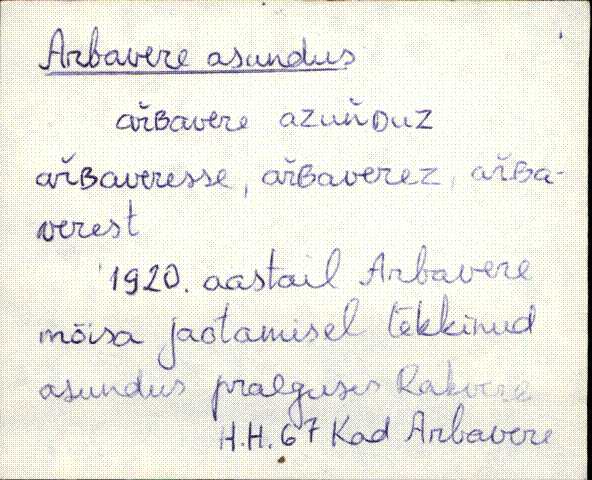 Arbavere asundus
ař̌ʙavere azuňᴅuz
ařʙaveresse, ařʙaverez, ařʙa-
verest
1920. aastail Arbavere
mõisa jaotamisel tekkinud
asundus praeguses Rakvere
H.H. 67 Kad Arbavere